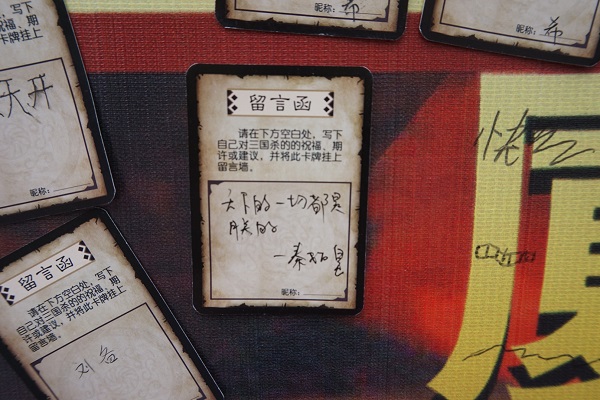 写下
祝福、期
卡牌挂上
天开
昵称:
昵称:
希
昵称:
希
留言函
请在下方空白处，写下
自己对三国杀的的祝福、期
许或建议，并将此卡牌挂上
留言墙。
天下的一切都是
朕的
—秦始皇
昵称:
留言函
请在下方空白处，写下
自己对三国杀的的祝福、期
许或建议，并将此卡牌挂上
留言墙。
刘备